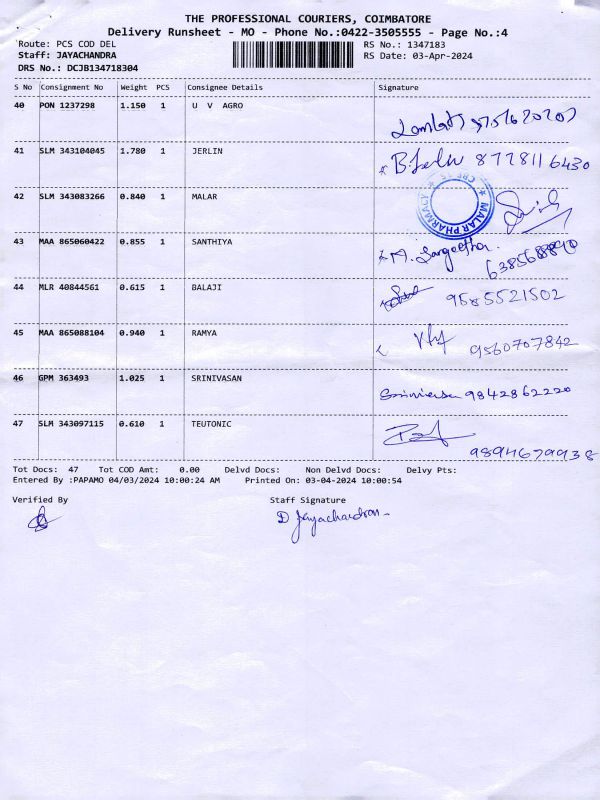 THE PROFESSIONAL COURIERS, COIMBATORE
Delivery Runsheet - MO - Phone No.:0422-3505555 - Page No.:4
Route: PCS COD DEL
Staff: JAYACHANDRA
DRS No.: DCJB134718304
RS No.: 1347183
RS Date: 03-Apr-2024
S No Consignment No Weight PCS Consignee Details Signature
40 PON 1237298 1.150 1 U V AGRO
41 SLM 343104045 1.780 1 JERLIN B. Jerlin 8778116430
42 SLM 343083266 0.840 1 MALAR MALAR PHARMACY
43 MAA 865060422 0.855 1 SANTHIYA M. Sangeetha
44 MLR 40844561 0.615 1 BALAJI 9585521502
45 MAA 865088104 0.940 1 RAMYA 9560707842
46 GPM 363493 1.025 1 SRINIVASAN Srinivasan 9842862220
47 SLM 343097115 0.610 1 TEUTONIC 9894679938
Tot Docs: 47 Tot COD Amt: 0.00 Delvd Docs: Non Delvd Docs: Delvy Pts:
Entered By :PAPAMO 04/03/2024 10:00:24 AM Printed On: 03-04-2024 10:00:54
Verified By Staff Signature
D Jayachandran